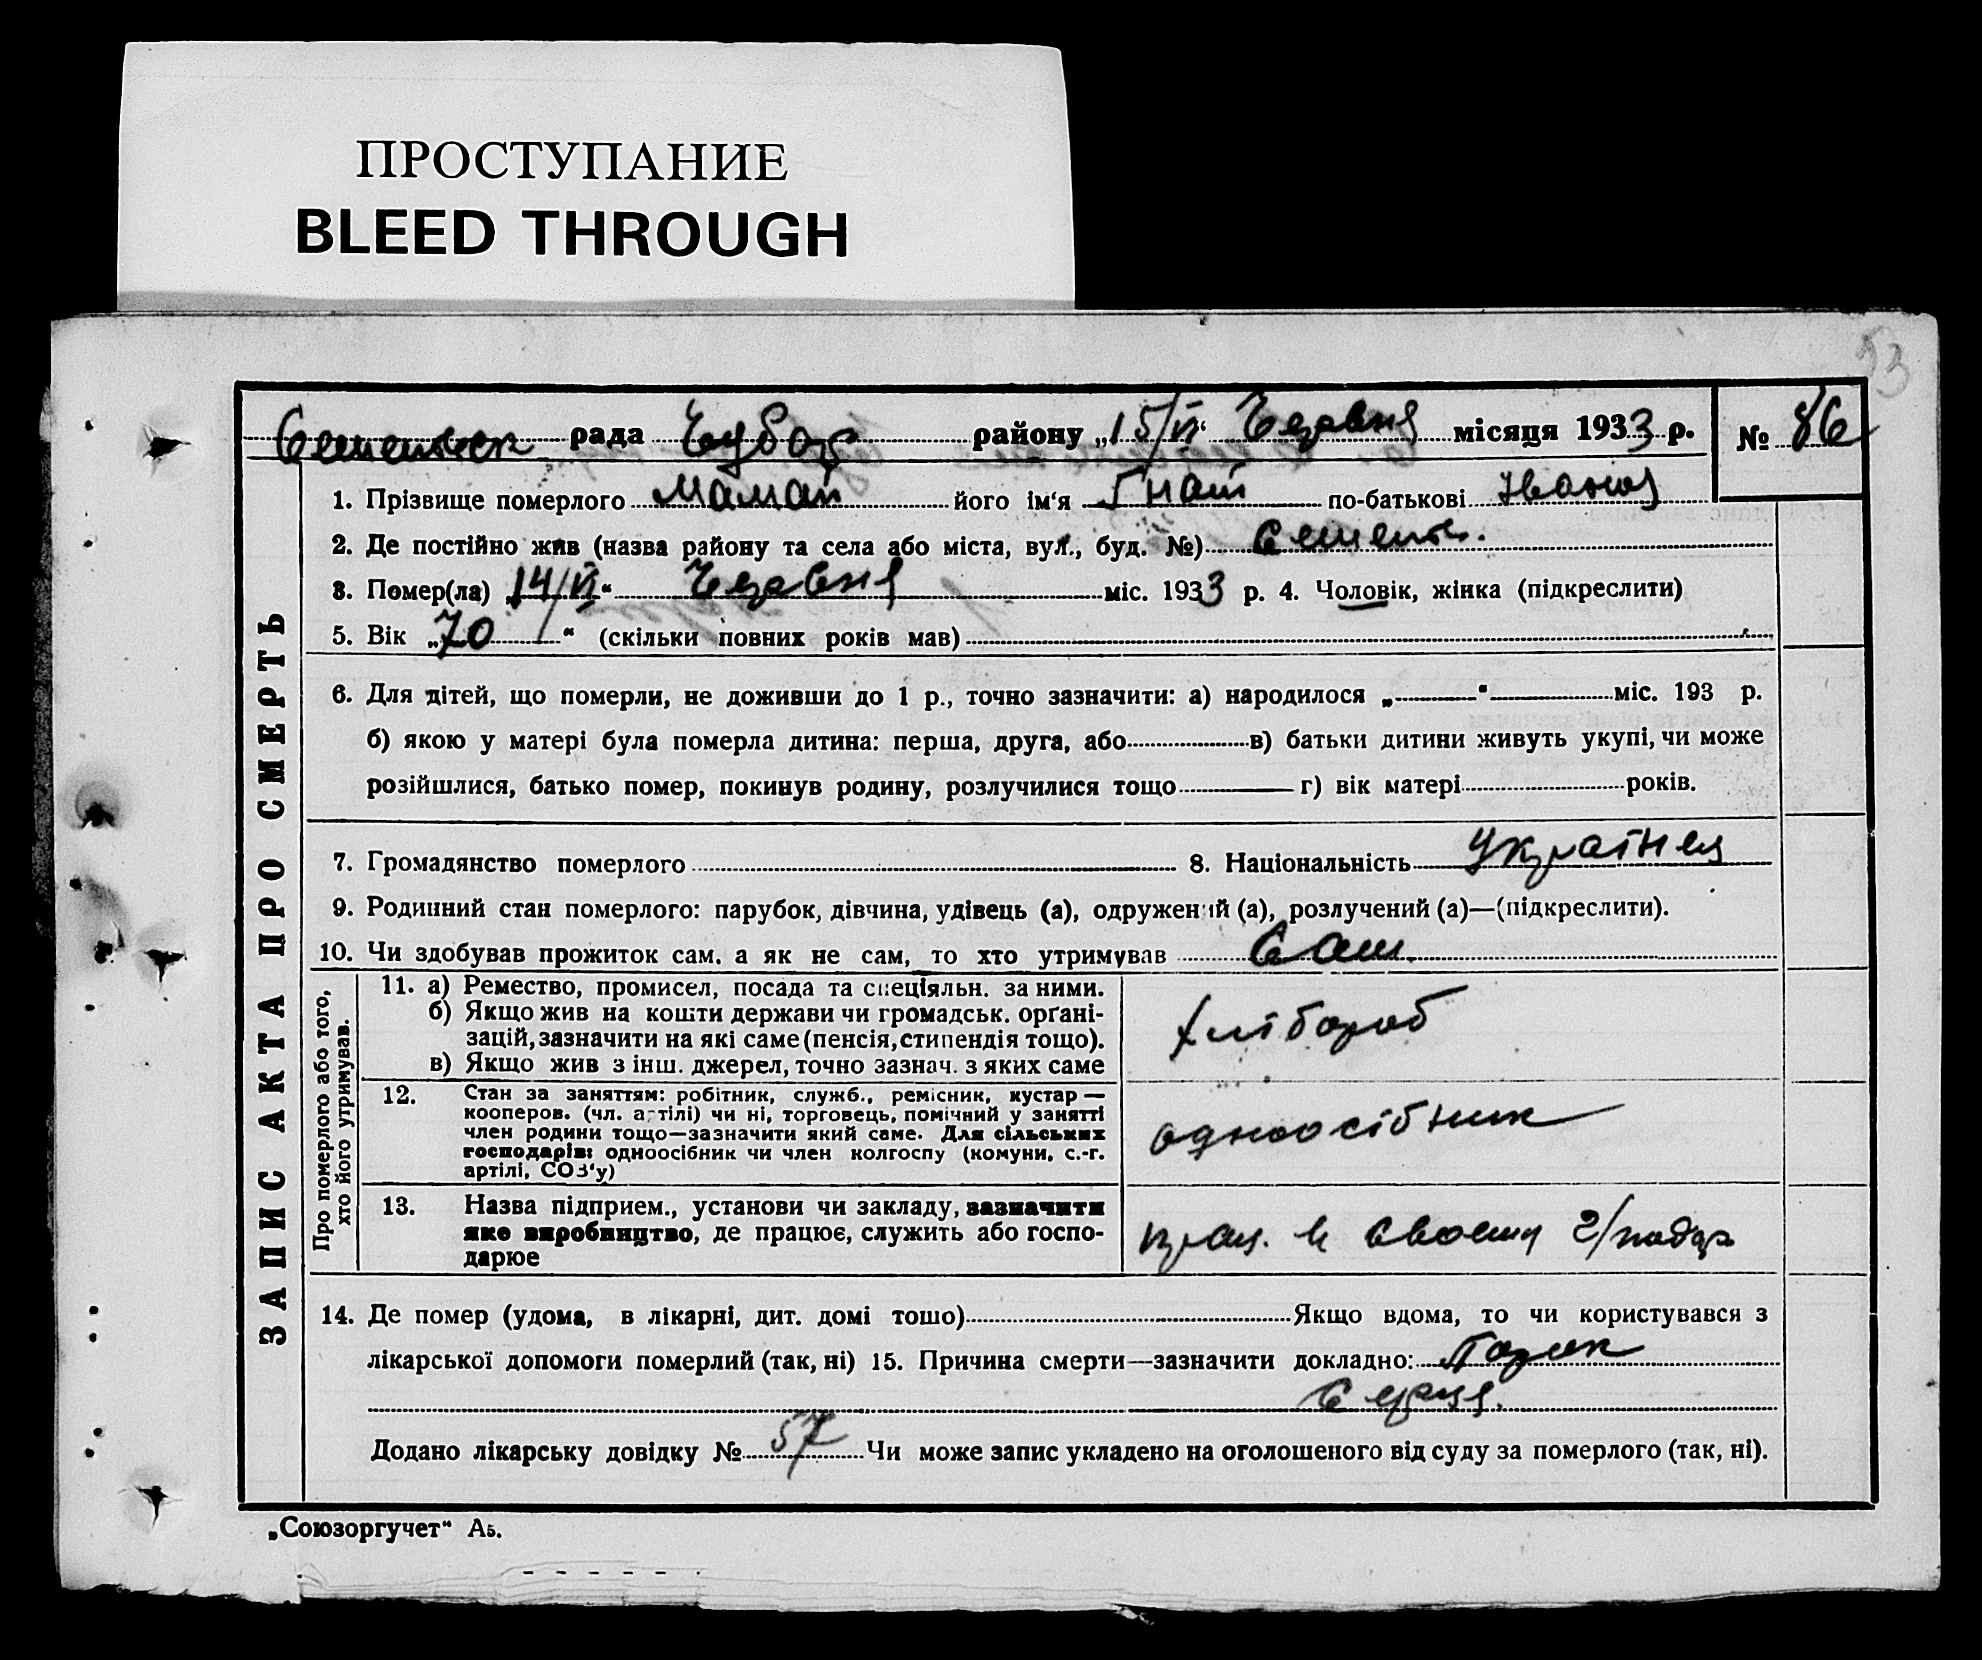 ПРОСТУПАНИЕ
BLEED THROUGH
93
Семенівск рада Чубар району „15/VI“ Червня місяця 1933 р. № 86
ЗАПИС АКТА ПРО СМЕРТЬ
1. Прізвище померлого Мамай його ім'я Гнат по-батькові Іванов
2. Де постійно жив (назва району та села або міста, вул., буд. №)
3. Помер(ла) „14/VI“ Червня міс. 1933 р. 4. Чоловік, жінка (підкреслити)
5. Вік „70“ (скільки повних років мав)
6. Для дітей, що померли, не доживши до 1 р., точно зазначити: а) народилося „ “ міс. 193 р.
б) якою у матері була померла дитина: перша, друга, або в) батьки дитини живуть укупі, чи може
розійшлися, батько помер, покинув родину, розлучилися тощо г) вік матері років.
7. Громадянство померлого 8. Національність
9. Родинний стан померлого: парубок, дівчина, удівець (а), одружений (а), розлучений (а)—(підкреслити).
10. Чи здобував прожиток сам, а як не сам, то хто утримував Сам.
Про померлого або того,
хто його утримував.
11. а) Ремество, промисел, посада та спеціяльн. за ними.
б) Якщо жив на кошти держави чи громадськ. органі-
зацій, зазначити на які саме (пенсія, стипендія тощо).
в) Якщо жив з інш. джерел, точно зазнач. з яких саме
хлібороб
12. Стан за заняттям: робітник, служб., ремісник, кустар—
кооперов. (чл. артілі) чи ні, торговець, помічний у занятті
член родини тощо—зазначити який саме. Для сільських
господарів: одноосібник чи член колгоспу (комуни, с.-г.
артілі, СОЗ'у)
одноосібник
13. Назва підприєм., установи чи закладу, зазначити
яке виробництво, де працює, служить або госпо-
дарює
прац. в своему г/подар.
14. Де помер (удома, в лікарні, дит. домі тощо) Якщо вдома, то чи користувався з
лікарської допомоги померлий (так, ні) 15. Причина смерти—зазначити докладно: Порок
Серця.
Додано лікарську довідку № 57 Чи може запис укладено на оголошеного від суду за померлого (так, ні).
„Союзоргучет“ А5.